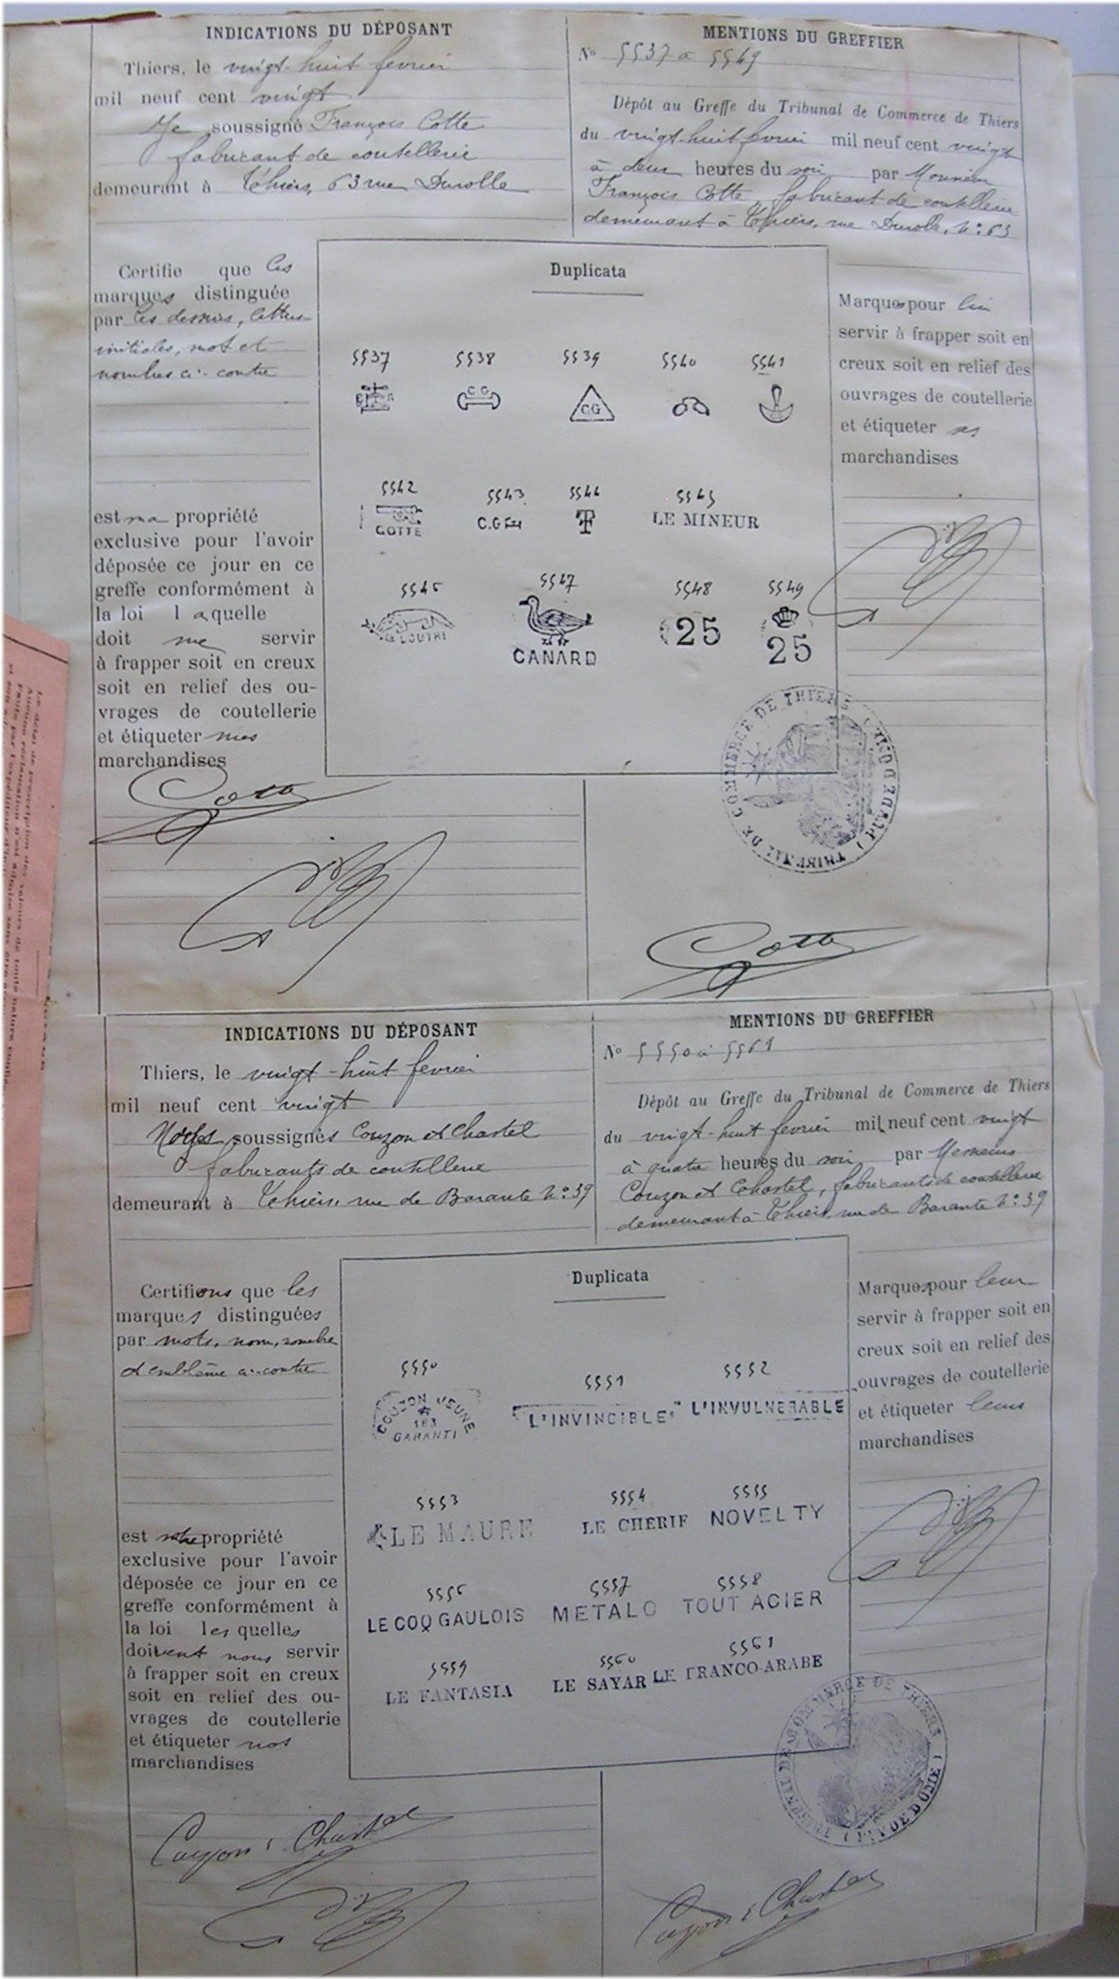 INDICATIONS DU DÉPOSANT
Thiers, le vingt-huit fevrier
mil neuf cent vingt
Je soussigné François Cotte
fabricant de coutellerie
demeurant à Thiers, 63 rue Durolle
MENTIONS DU GREFFIER
No 5537 a 5549
Dépôt au Greffe du Tribunal de Commerce de Thiers
du vingt-huit fevrier mil neuf cent vingt
à deux heures du soir par Monsieur
François Cotte fabricant de coutellerie
demeurant à Thiers, rue Durolle, No: 63
Certifie que les
marques distinguée
par les dessins, lettres
initiales, mot et
nombres ci-contre
est ma propriété
exclusive pour l'avoir
déposée ce jour en ce
greffe conformément à
la loi laquelle
doit me servir
à frapper soit en creux
soit en relief des ou-
vrages de coutellerie
et étiqueter mes
marchandises
Duplicata
5537 5538 5539 5540 5541
C G
CG
5542 5543 5544 5545
COTTE C.G T LE MINEUR
5546 5547 5548 5549
LA LOUTRE CANARD 25 25
Marques pour lui
servir à frapper soit en
creux soit en relief des
ouvrages de coutellerie
et étiqueter ses
marchandises
TRIBUNAL DE COMMERCE DE THIERS (PUY DE DOME)
Cotte
Cotte
INDICATIONS DU DÉPOSANT
Thiers, le vingt-huit fevrier
mil neuf cent vingt
Nous soussignés Couzon et Chastel
fabricants de coutellerie
demeurant à Thiers, rue de Barante No: 39
MENTIONS DU GREFFIER
No 5550 à 5561
Dépôt au Greffe du Tribunal de Commerce de Thiers
du vingt-huit fevrier mil neuf cent vingt
à quatre heures du soir par Messieurs
Couzon et Chastel, fabricants de coutellerie
demeurant à Thiers, rue de Barante No: 39
Certifions que les
marques distinguées
par mots, nom, nombre
et emblème ci-contre
est notre propriété
exclusive pour l'avoir
déposée ce jour en ce
greffe conformément à
la loi lesquelles
doivent nous servir
à frapper soit en creux
soit en relief des ou-
vrages de coutellerie
et étiqueter nos
marchandises
Duplicata
5550 5551 5552
COUZON JEUNE
183
GARANTI
"L'INVINCIBLE" L'INVULNERABLE
5553 5554 5555
LE MAURE LE CHERIF NOVELTY
5556 5557 5558
LE COQ GAULOIS METALO TOUT ACIER
5559 5560 5561
LE FANTASIA LE SAYAR LE FRANCO-ARABE
Marques pour leur
servir à frapper soit en
creux soit en relief des
ouvrages de coutellerie
et étiqueter leurs
marchandises
TRIBUNAL DE COMMERCE DE THIERS (PUY DE DOME)
Couzon & Chastel
Couzon & Chastel